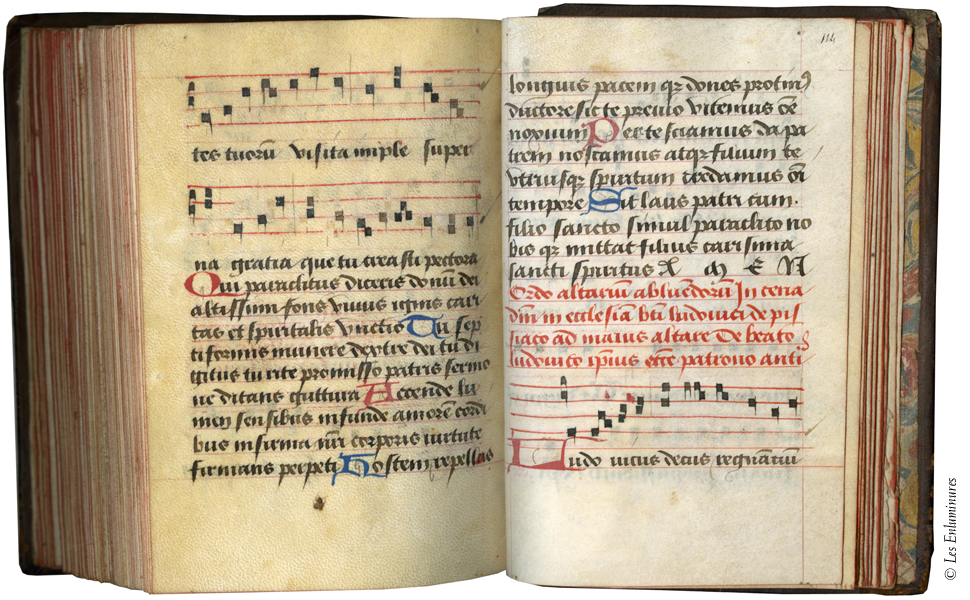 tes tuorū visita imple super
na gratia que tu creasti pectora
Qui paraclitus diceris donū dei
altissimi fons vivus ignis cari
tas et spiritalis vnctio Tu sep
tiformis munere dextre dei tu di
gitus tu rite promisso patris sermo
ne ditans guttura Accende lu
men sensibus infunde amorē cordi
bus infirma nr̄i corporis virtute
firmans perpeti Hostem repellas
114
longius pacem qz dones protinꝰ
ductore sic te previo vitemus oē
noxium Per te sciamus da pa
trem noscamus atqz filium te
vtriusqz spiritum credamus oī
tempore Sit laus patri cum
filio sancto simul paraclito no
bis qz mittat filius carisma
sancti spiritus A M E N
Ordo altariū abluendorū In cena
dn̄i in ecclesia btī ludovici de pis
siaco ad maius altare De beato
ludovico ip̄ius ecc̄e patrono anti
Ludovicus decus regnātiū
© Les Enluminures